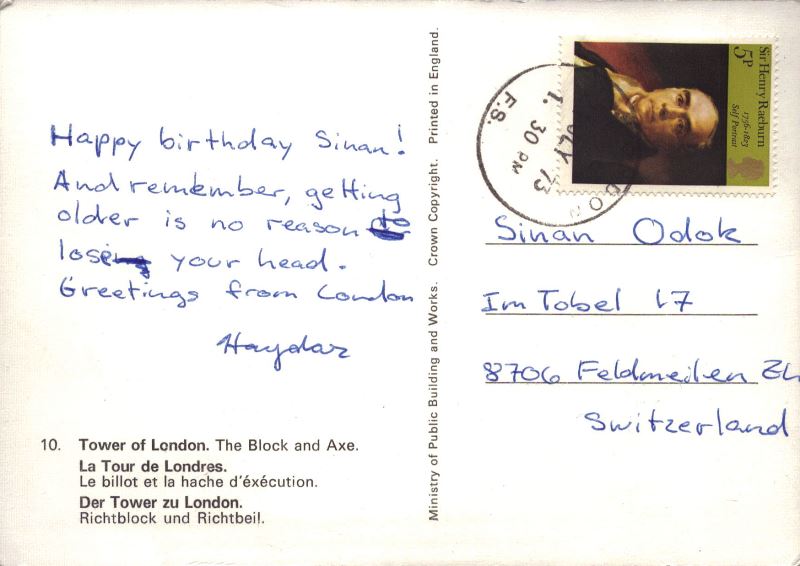 Happy birthday Sinan!
And remember, getting
older is no reason to
lose your head.
Greetings from London
Haydar
10. Tower of London. The Block and Axe.
La Tour de Londres.
Le billot et la hache d'éxécution.
Der Tower zu London.
Richtblock und Richtbeil.
Ministry of Public Building and Works. Crown Copyright. Printed in England.
5P
Sir Henry Raeburn
1756-1823
Self Portrait
1. 30 PM
ULY 73
F.S.
DON
Sinan Odok
Im Tobel 17
8706 Feldmeilen ZH
Switzerland